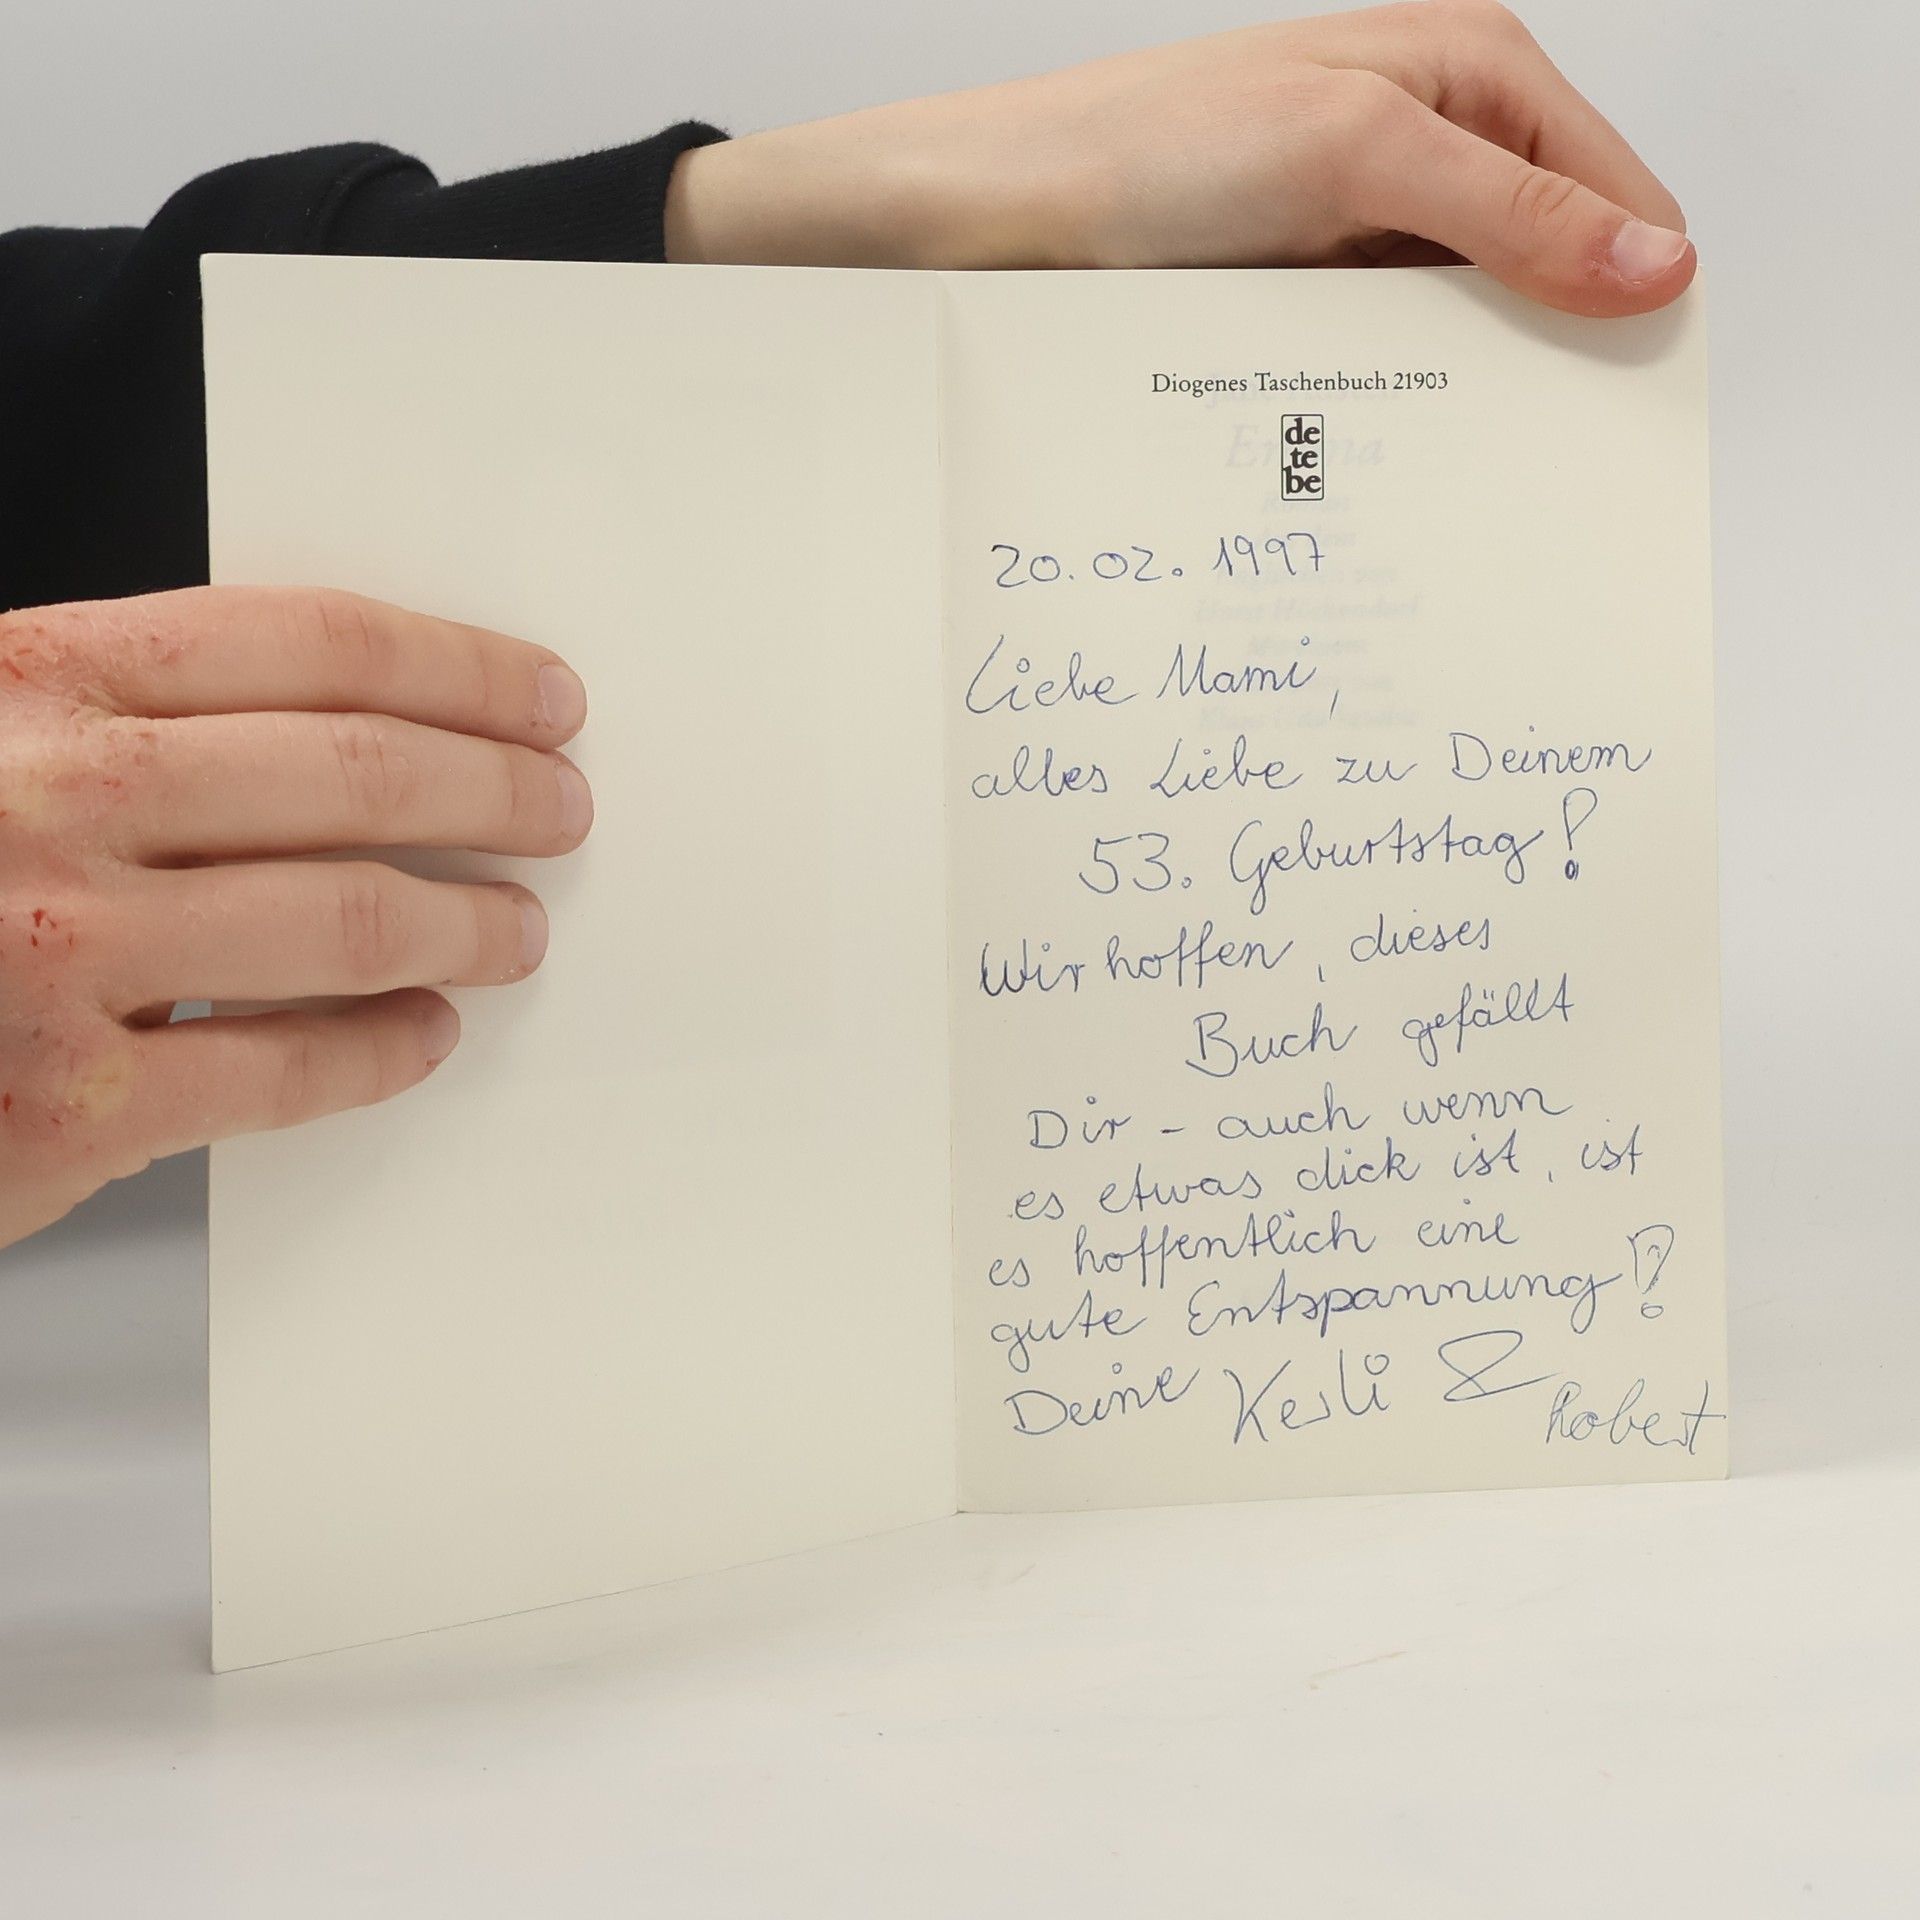 Diogenes Taschenbuch 21903
de
te
be
20.02.1997
Liebe Mami,
alles Liebe zu Deinem
53. Geburtstag!
Wir hoffen, dieses
Buch gefällt
Dir - auch wenn
es etwas dick ist, ist
es hoffentlich eine
gute Entspannung!
Deine Kerli &
Robert